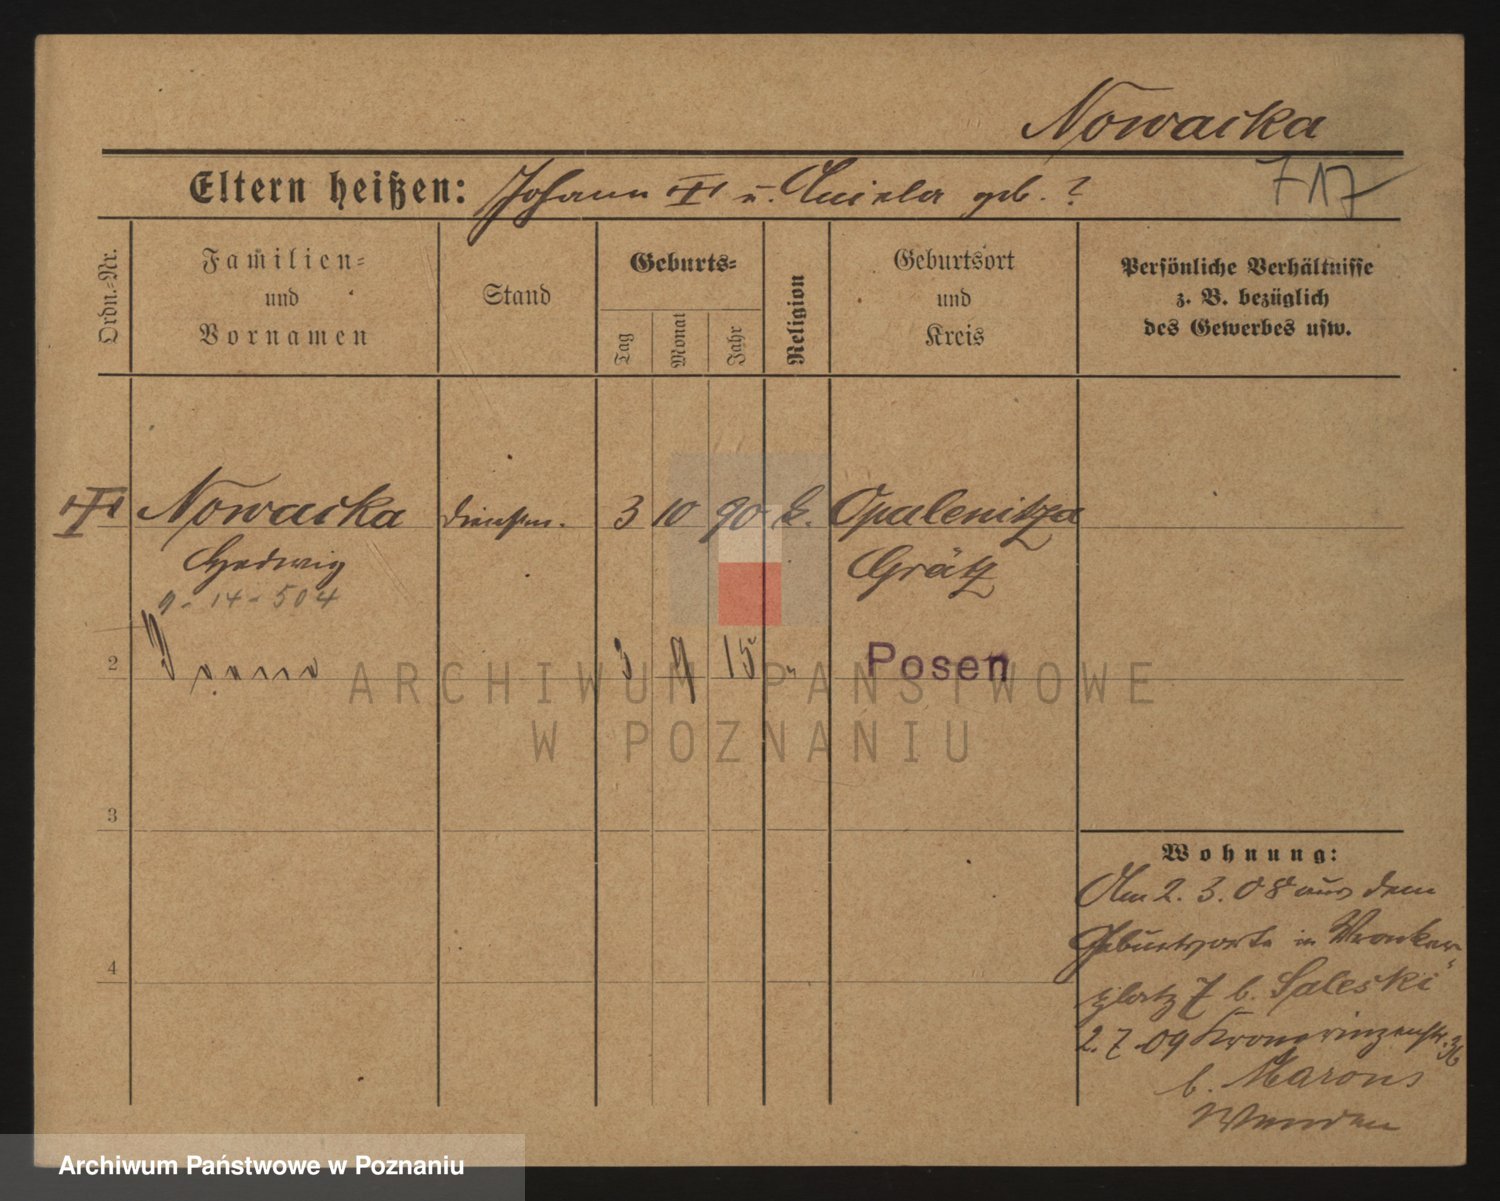 Nowacka
Eltern heißen: Johann u. Aniela geb. ?
717
Ordn.-Nr.
Familien-
und
Vornamen
Stand
Geburts-
Tag
Monat
Jahr
Religion
Geburtsort
und
Kreis
Persönliche Verhältnisse
z. B. bezüglich
des Gewerbes usw.
Nowacka Dienstm. 3 10 90 k. Opalenitza
Hedwig Grätz
9-14-504
2 3 9 15 " Posen
3
4
Wohnung:
Am 2. 3. 08 aus dem
Geburtsorte in Wronker-
platz 7 b. Saleski
2. 7. 09 Kronprinzenstr. 36
b. Marons
ARCHIWUM PAŃSTWOWE
W POZNANIU
Archiwum Państwowe w Poznaniu